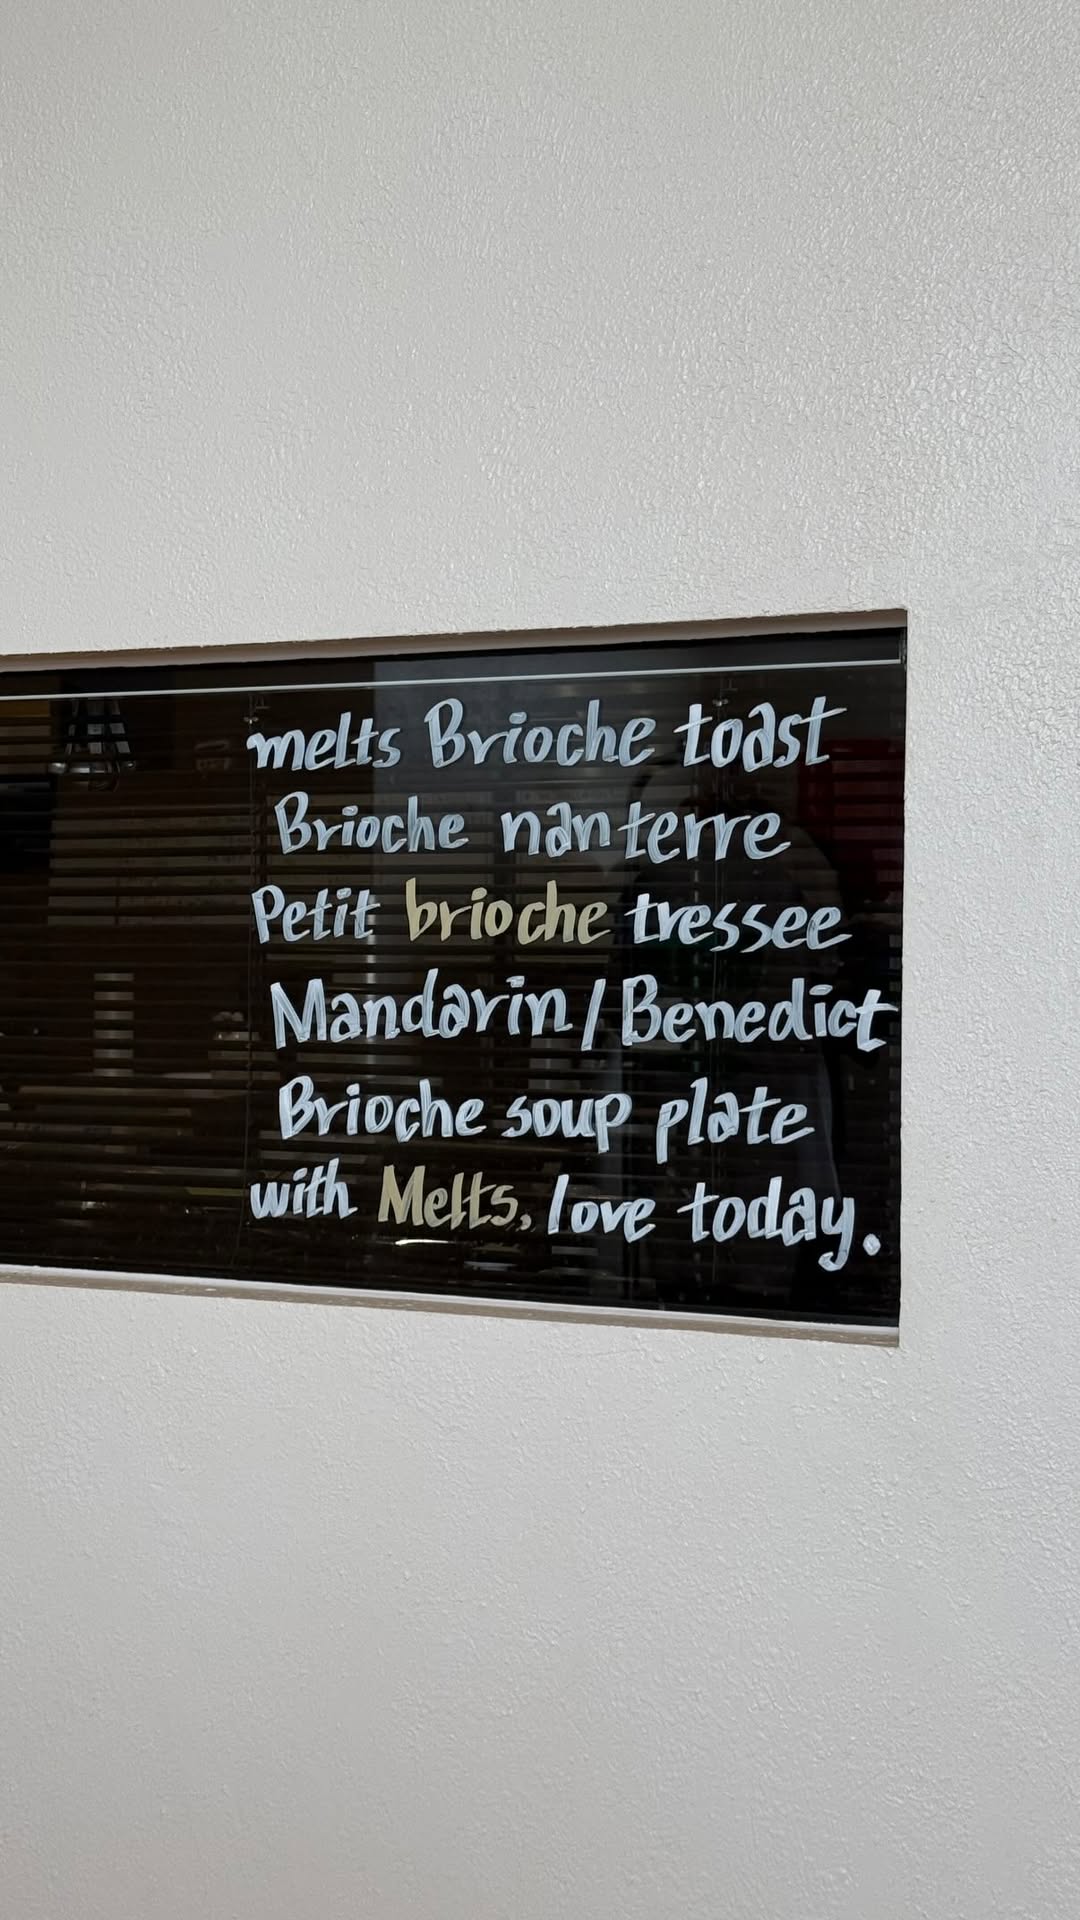 melts Brioche toast
Brioche nanterre
Petit brioche tressee
Mandarin/Benedict
Brioche soup plate
with Melts, love today.